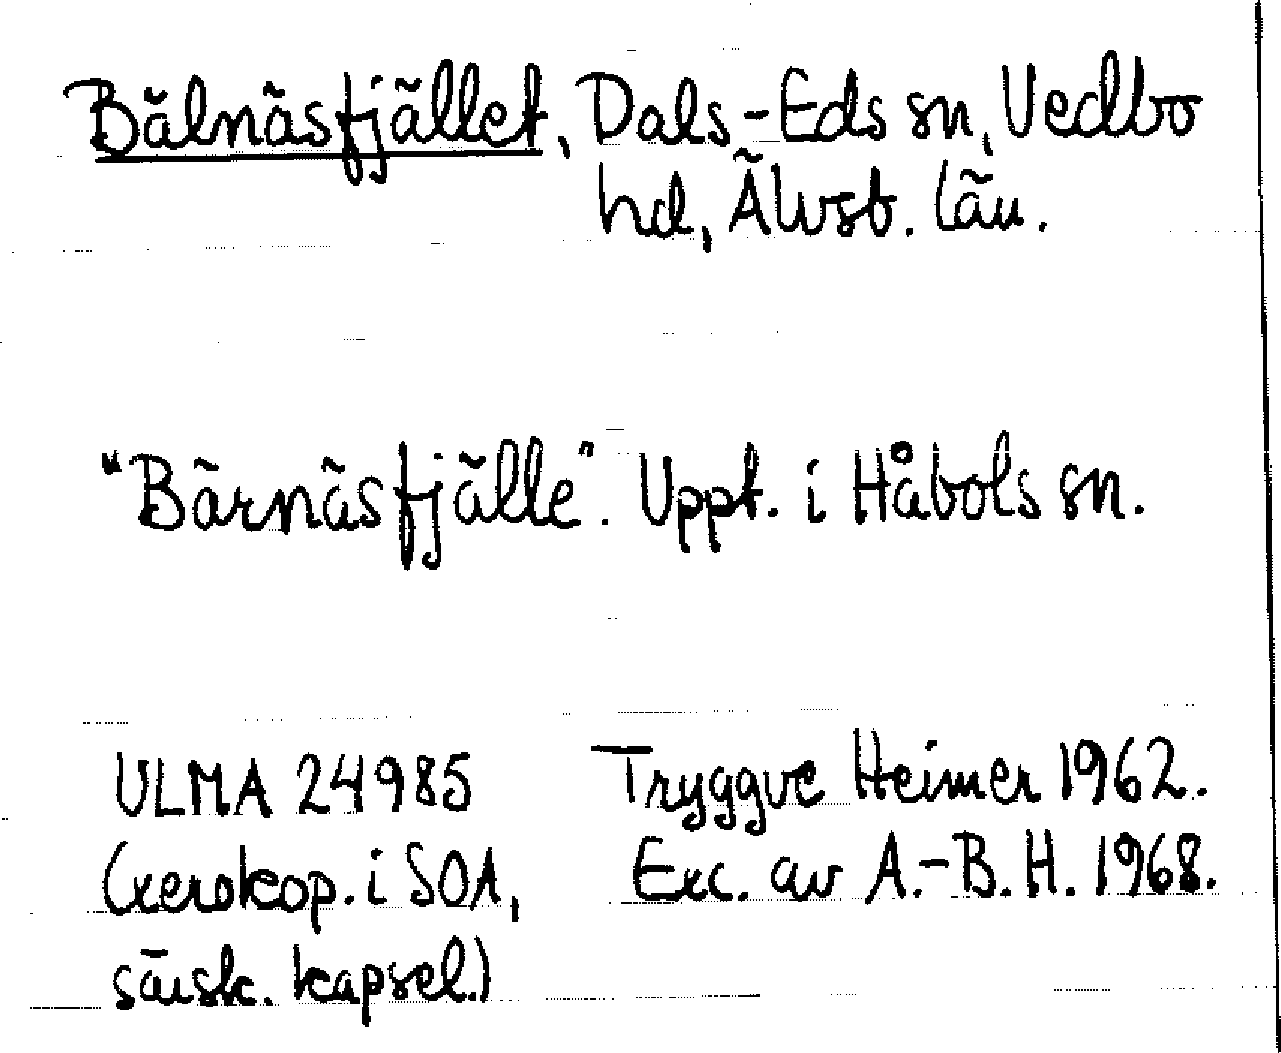 Bälnäsfjället, Dals-Eds sn, Vedbo
hd, Älvsb. län.
"Bärnäsfjälle". Uppt. i Håbols sn.
ULMA 24985
(xerokop. i SOA,
särsk. kapsel.)
Tryggve Heimer 1962.
Exc. av A.-B. H. 1968.